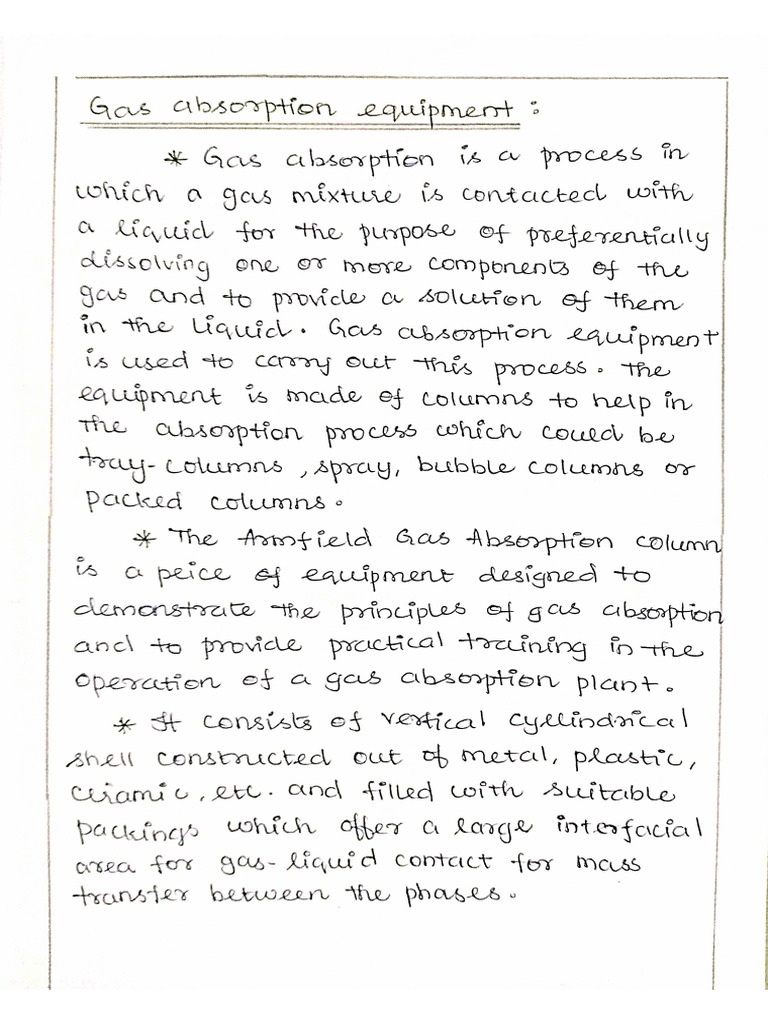 Gas absorption equipment :
* Gas absorption is a process in
which a gas mixture is contacted with
a liquid for the purpose of preferentially
dissolving one or more components of the
gas and to provide a solution of them
in the liquid. Gas absorption equipment
is used to carry out this process. The
equipment is made of columns to help in
the absorption process which could be
tray-columns, spray, bubble columns or
packed columns.
* The Armfield Gas Absorption column
is a peice of equipment designed to
demonstrate the principles of gas absorption
and to provide practical training in the
operation of a gas absorption plant.
* It consists of vertical cyclindrical
shell constructed out of metal, plastic,
ceramic, etc. and filled with suitable
packings which offer a large interfacial
area for gas-liquid contact for mass
transfer between the phases.